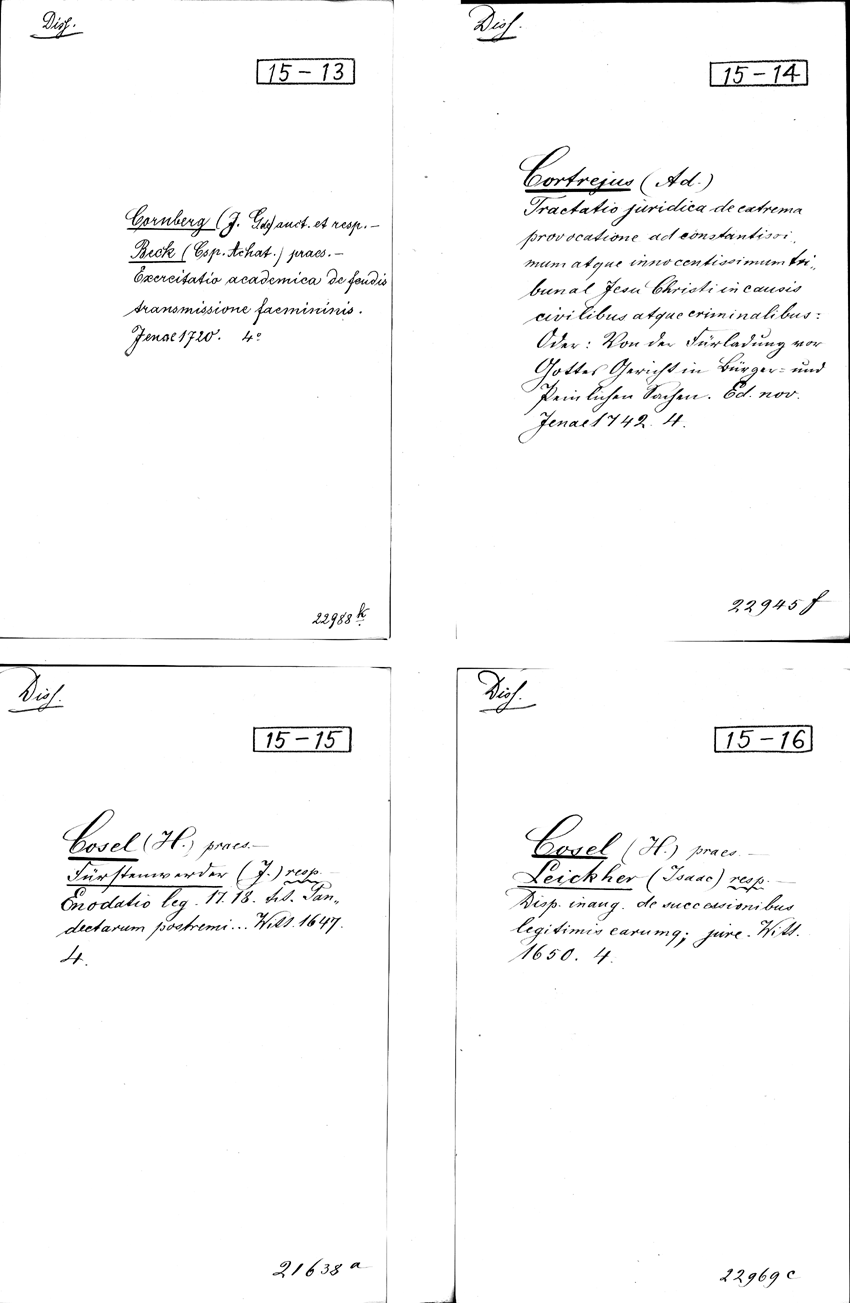 Diss.
15-13
Cornberg (J. Gde) auct. et resp. —
Beck (Csp. Achat.) praes. —
Exercitatio academica de feudis
transmissione faemininis.
Jenae 1720. 4°
22988 k
Diss.
15-14
Cortrejus (Ad.)
Tractatio juridica de extrema
provocatione ad constantissi,
mum atque innocentissimum tri,,
bunal Jesu Christi in causis
civilibus atque criminalibus:
Oder: Von der Fürladung vor
Gottes Gericht in Bürger= und
Peinlichen Sachen. Ed. nov.
Jenae 1742. 4.
22945 f
Diss.
15-15
Cosel (H.) praes. —
Fürstenwerder (J.) resp. —
Enodatio leg. 17. 18. tit. Pan,,
dectarum postremi... Witt. 1647.
4.
21638 a
Diss.
15-16
Cosel (H.) praes. —
Leickher (Isaac) resp. —
Disp. inaug. de successionibus
legitimis earumq; jure. Witt.
1650. 4.
22969 c